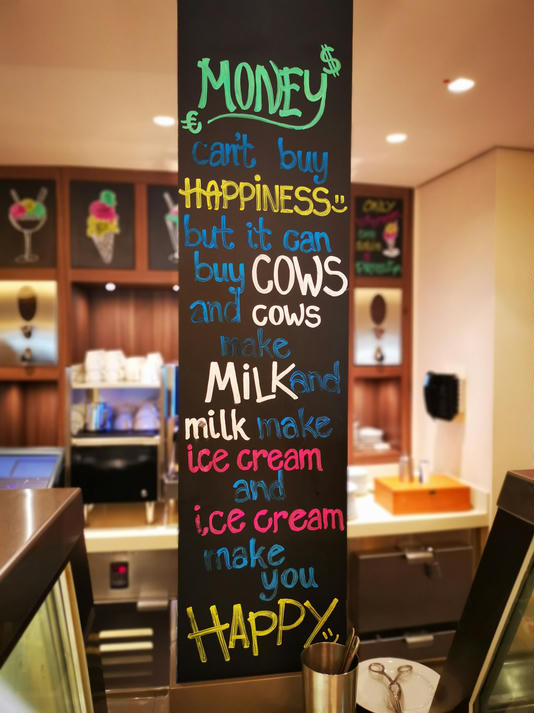 $
MONEY
€
can't buy
HAPPINESS
but it can
buy COWS
and cows
make
MiLK and
milk make
ice cream
and
ice cream
make
you
HAPPY
ONLY